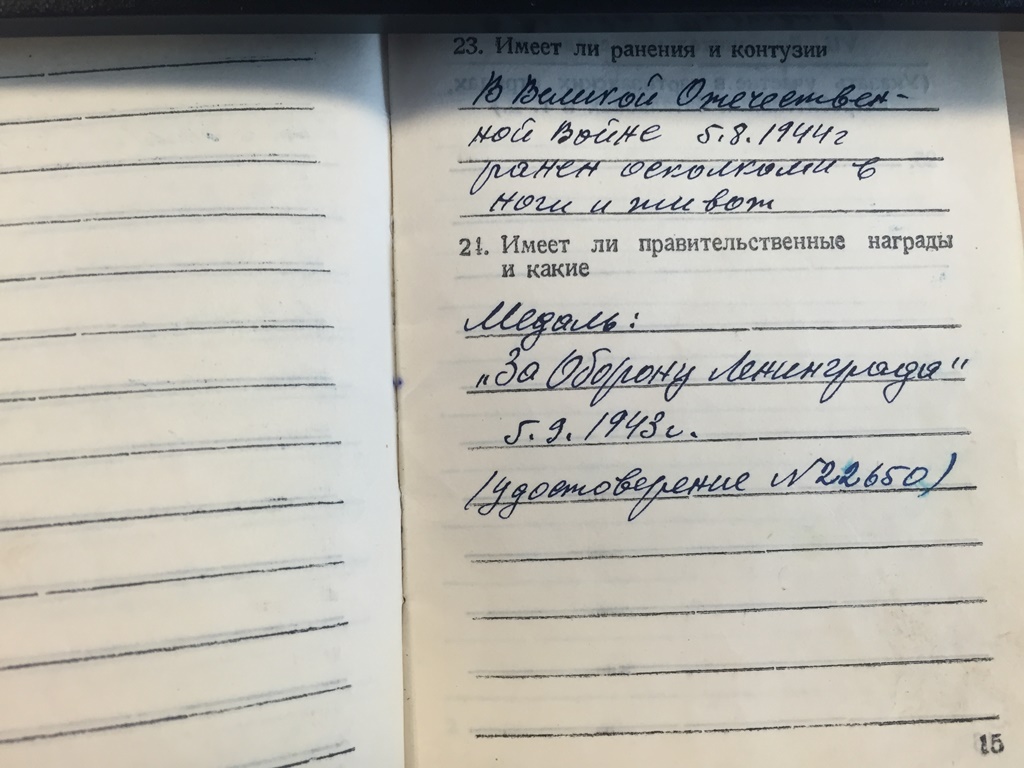 23. Имеет ли ранения и контузии
В Великой Отечествен-
ной Войне 5.8.1944г
ранен осколками в
ноги и живот
24. Имеет ли правительственные награды
и какие
Медаль:
„За Оборону Ленинграда"
5.9.1943г.
(удостоверение №22650)
15